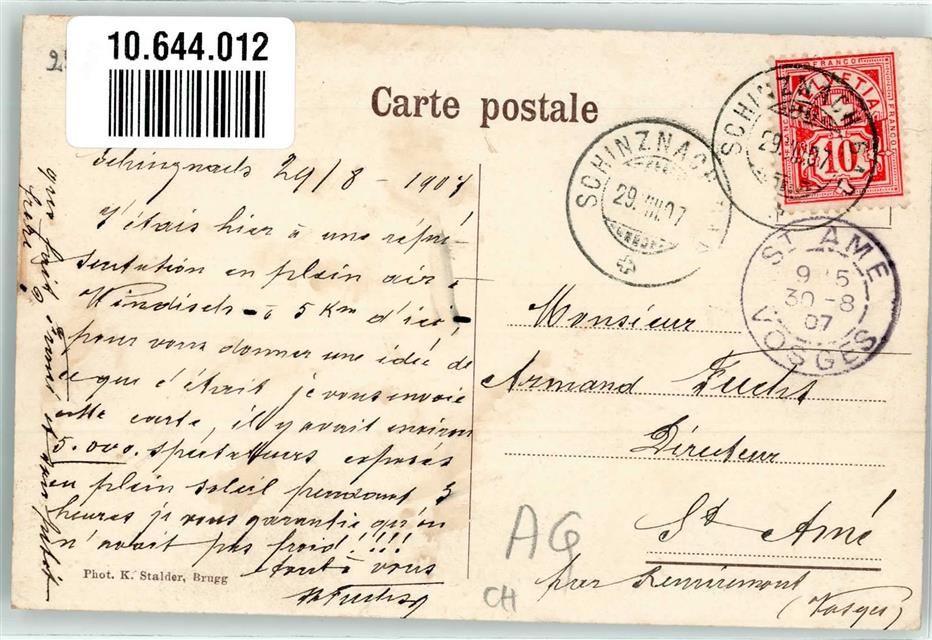 10.644.012
Carte postale
FRANCO
HELVETIA
FRANCO
10
SCHINZNACH
29.VIII.07
SCHINZNACH
29.VIII.07
ST AMÉ
9 15
30-8
07
VOSGES
Schinznach 29/8 - 1907
J'étais hier à une repré-
sentation en plein air à
Windisch - à 5 Km d'ici,
pour vous donner une idée de
ce que c'était je vous envoie
cette carte, il y avait environ
5.000. spectateurs exposés
en plein soleil pendant 3
heures je vous garantie qu'on
n'avait pas froid!!!!
tout à vous
Fuchs
Monsieur
Armand Fuchs
Directeur
St Amé
par Remiremont
(Vosges)
AG
CH
Phot. K. Stalder, Brugg